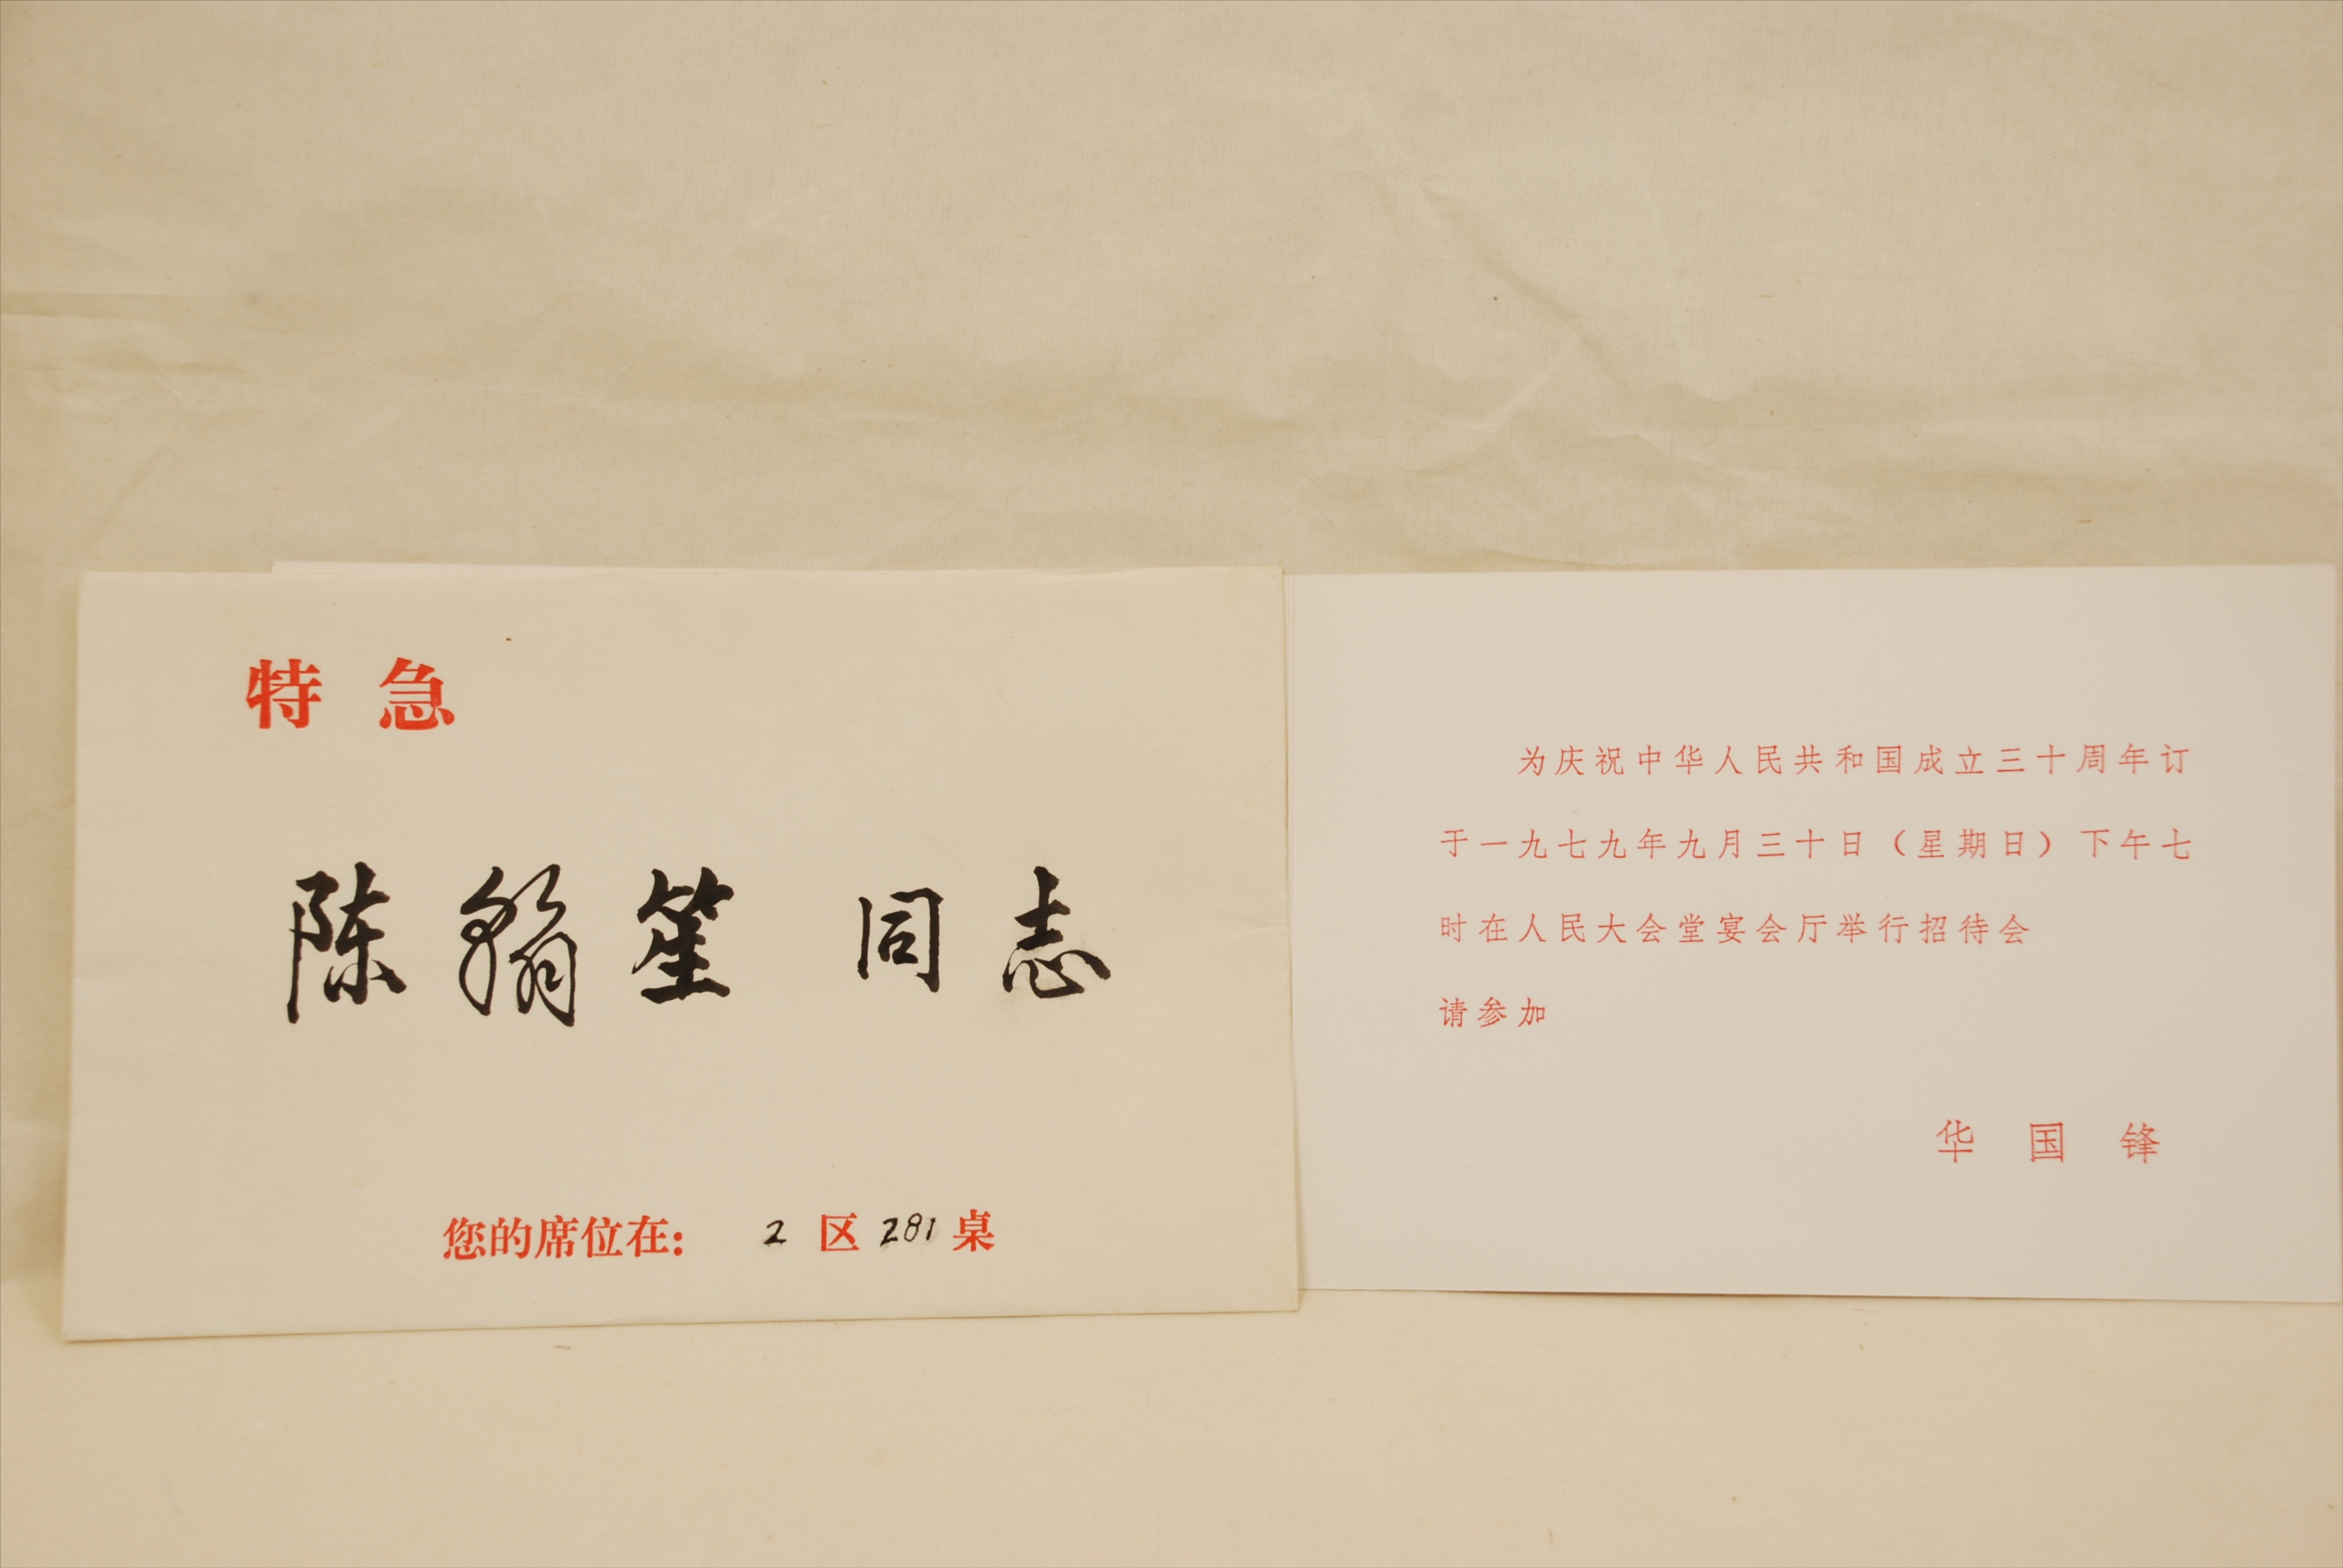 特急
陈翰笙 同志
您的席位在: 2 区 281 桌
为庆祝中华人民共和国成立三十周年订
于一九七九年九月三十日（星期日）下午七
时在人民大会堂宴会厅举行招待会
请参加
华国锋